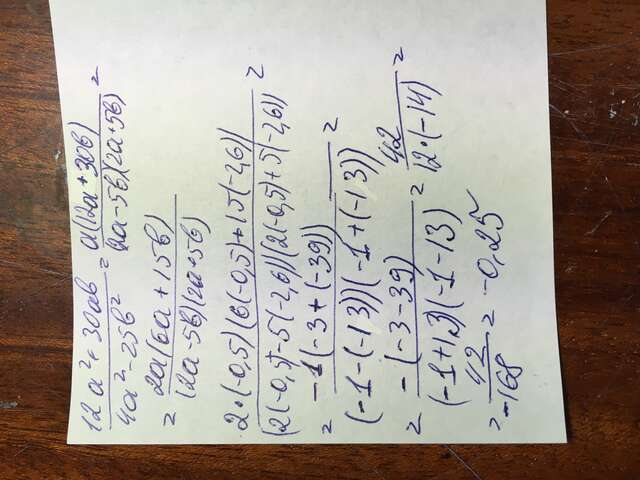 12a²+30ab / 4a²-25b² = a(12a+30b) / (2a-5b)(2a+5b) =
= 2a(6a+15b) / (2a-5b)(2a+5b)
2·(-0,5)(6(-0,5)+15(-2,6)) / (2(-0,5)-5(-2,6))(2(-0,5)+5(-2,6)) =
= -1(-3+(-39)) / (-1-(-13))(-1+(-13)) =
= -(-3-39) / (-1+13)(-1-13) = 42 / 12·(-14) =
= 42 / -168 = -0,25